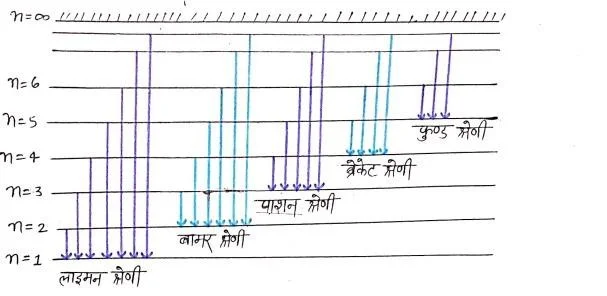 n=∞
n=6
n=5
फुण्ड श्रेणी
n=4
ब्रेकेट श्रेणी
n=3
पाशन श्रेणी
n=2
बामर श्रेणी
n=1
लाइमन श्रेणी